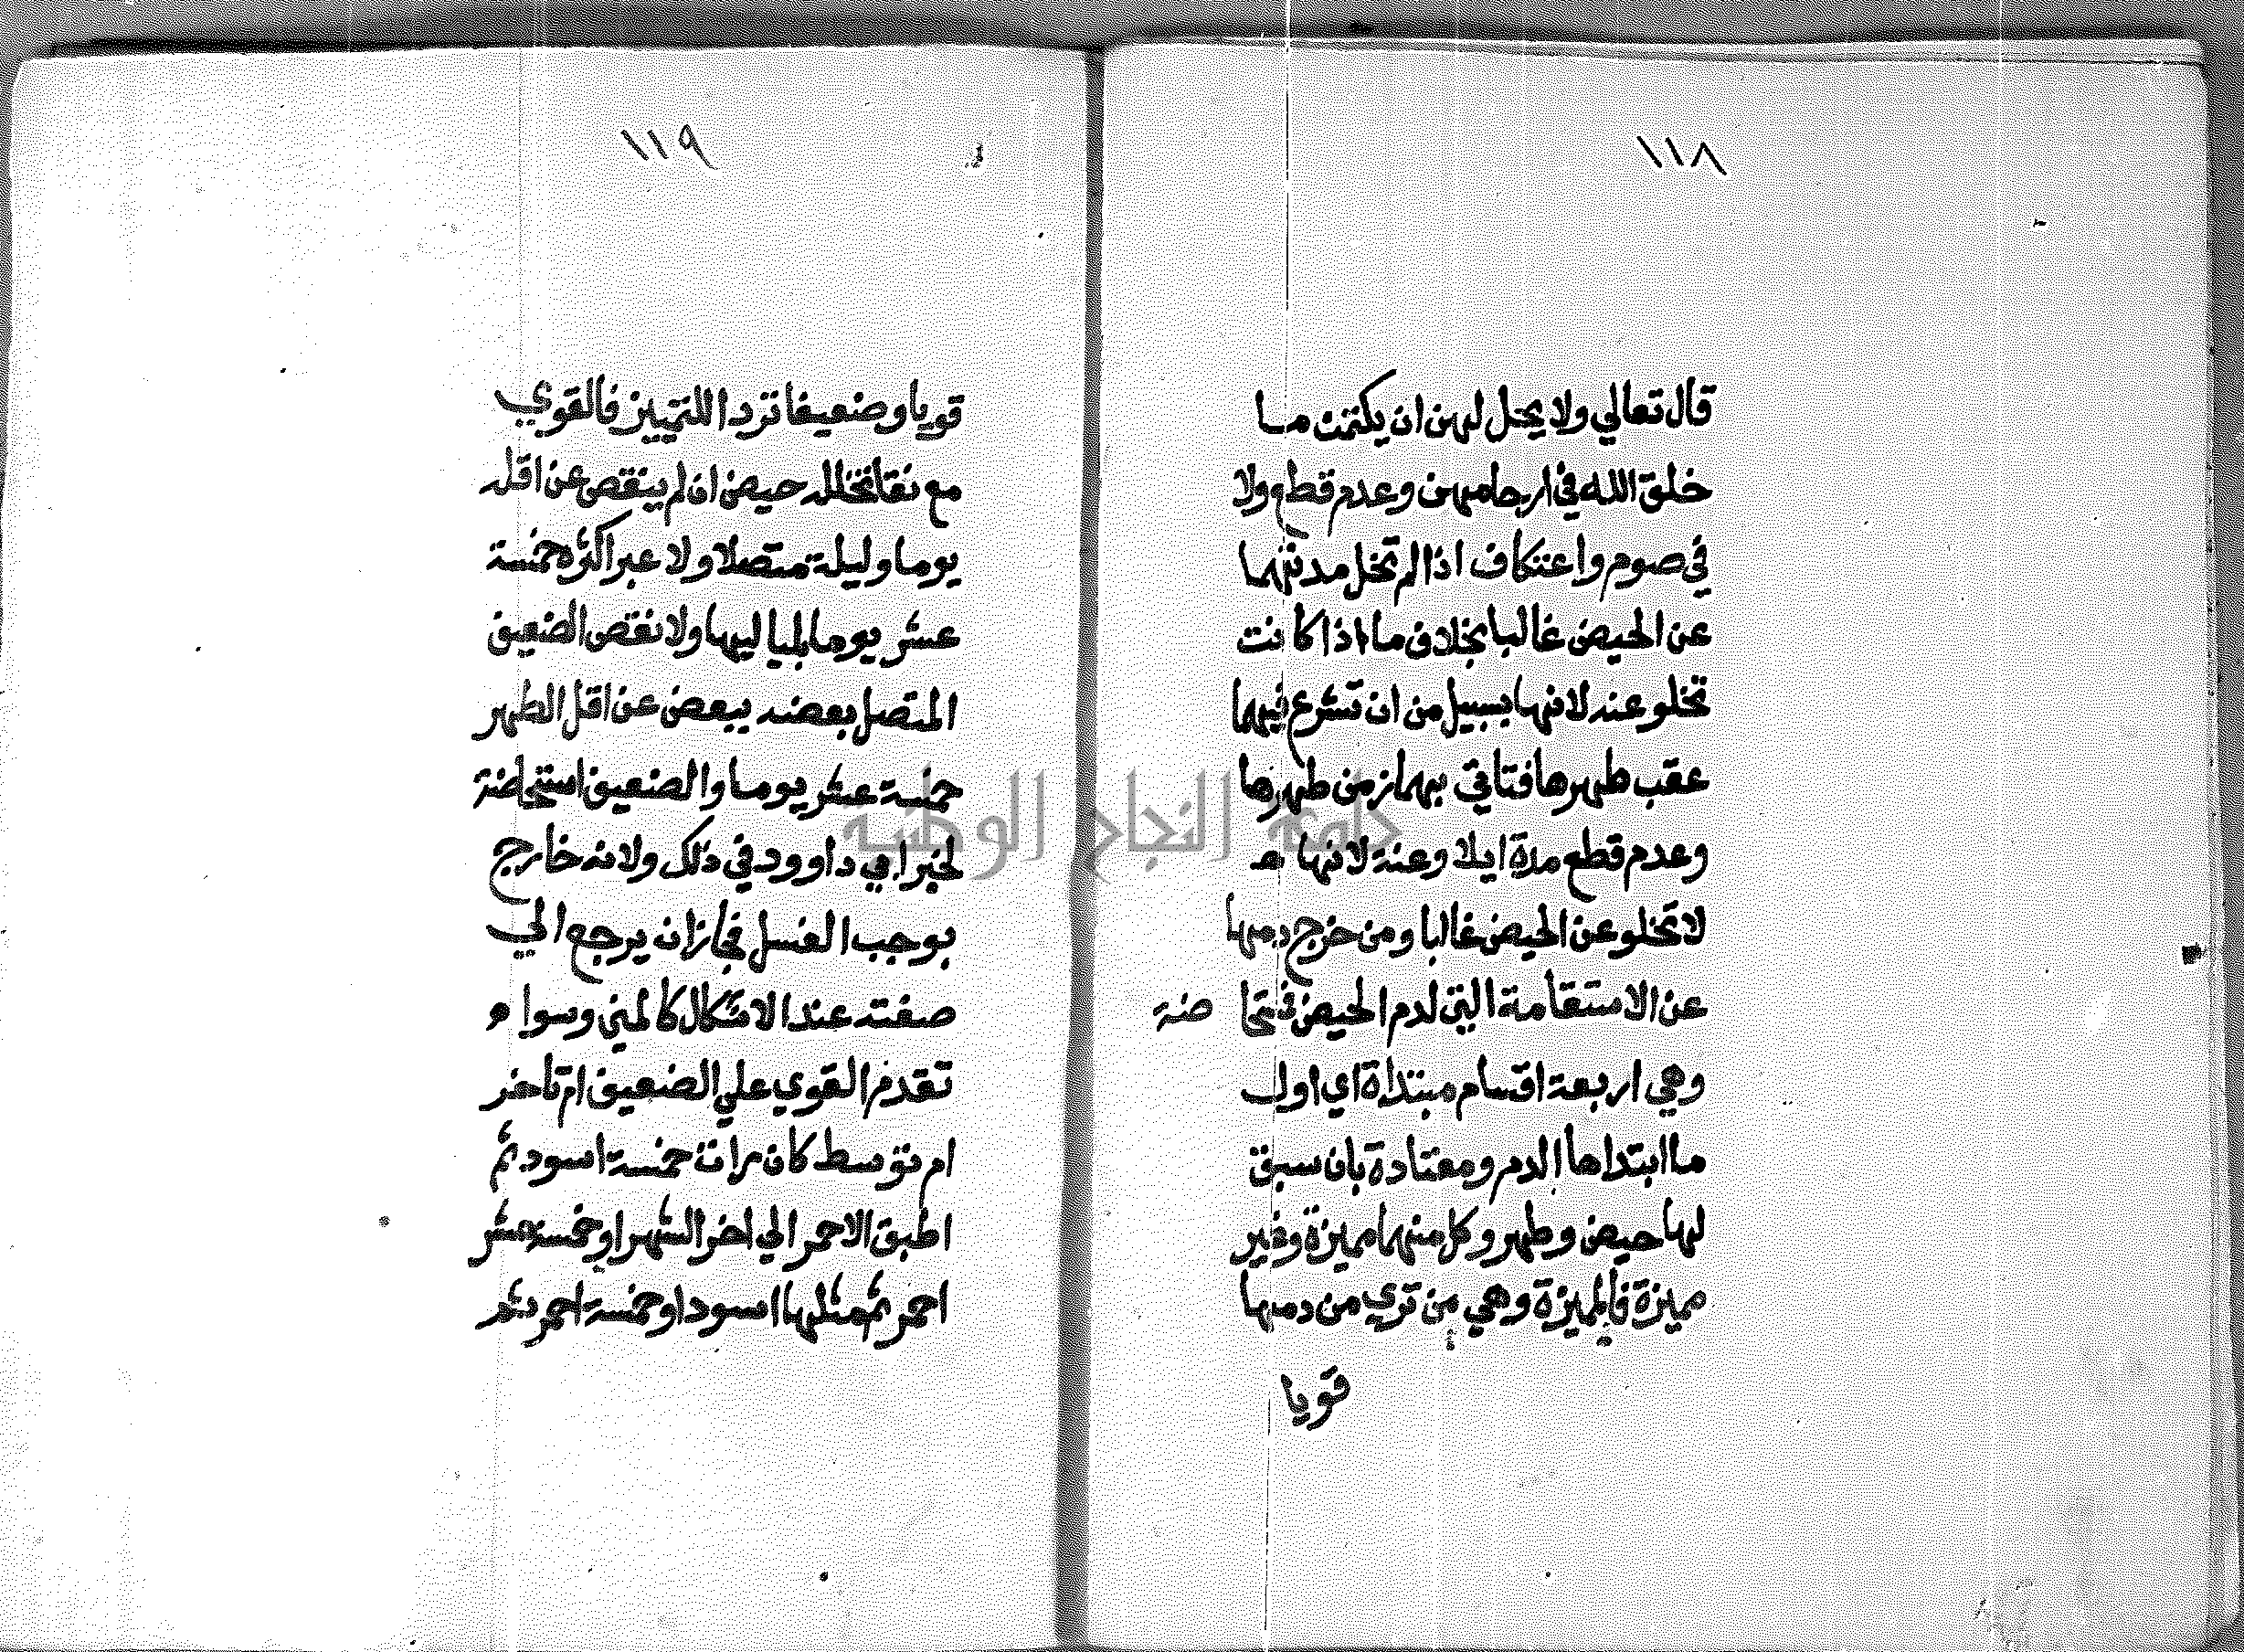 ١١٨
قال تعالي ولا يحل لهن ان يكتمن ما
خلق الله في ارحامهن وعدم قطع ولا
في صوم واعتكاف اذا لم تخل مدتهما
عن الحيض غالبا بخلاف ما اذا كانت
تخلو عنه لانها بسبيل من ان تشرع فيهما
عقب طهرها فتاتي بهما زمن طهرها
وعدم قطع مدة ايلا وعنة لانها
لا تخلو عن الحيض غالبا ومن خرج دمها
عن الاستقامة التي لدم الحيض فتحا ضة
وهي اربعة اقسام مبتداة اي اول
ما ابتداها الدم ومعتادة بان سبق
لها حيض وطهر وكل منهما مميزة وغير
مميزة فالمميزة وهي من تري من دمها
قويا
١١٩
قويا وضعيفا ترد اللتمييز فالقوي
مع نقا تخلله حيض ان لم ينقص عن اقله
يوما وليلة متصلا ولا عبر اكثره خمسة
عشر يوما بلياليها ولا نقص الضعيف
المتصل بعضه ببعض عن اقل الطهر
خمسة عشر يوما والضعيف استحاضة
لخبر ابي داوود في ذلك ولانه خارج
بوجب الغسل فجاز ان يرجع الي
صفته عند الاشكال كالمني وسوا
تقدم القوي علي الضعيف ام تاخر
ام توسط كان رات خمسة اسود ثم
اطبق الاحمر الي اخر الشهر او خمسة عشر
احمر ثم مثلها اسود او خمسة احمر ثم
جامعة النجاح الوطنية